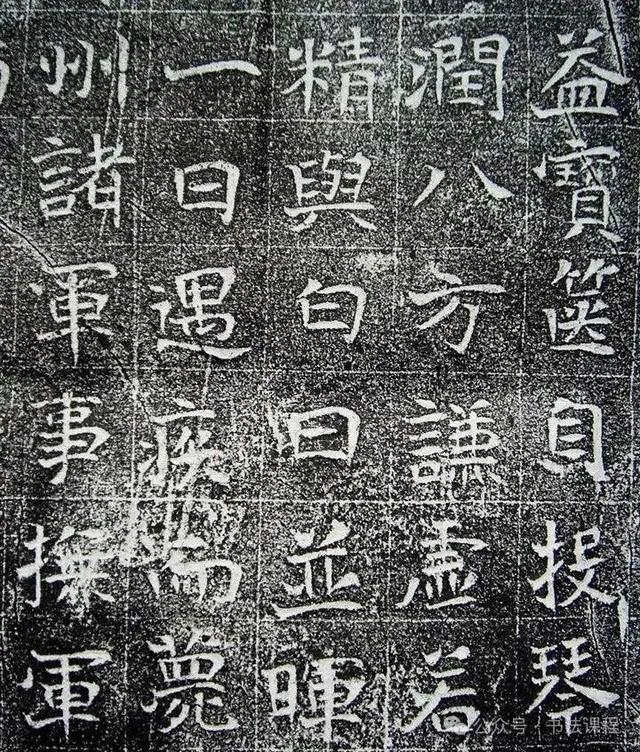 益寶篋自投琴
潤八方謙虛若
精與白日並暉
一日遇疾而薨
州諸軍事撫軍
公众号 · 书法课程